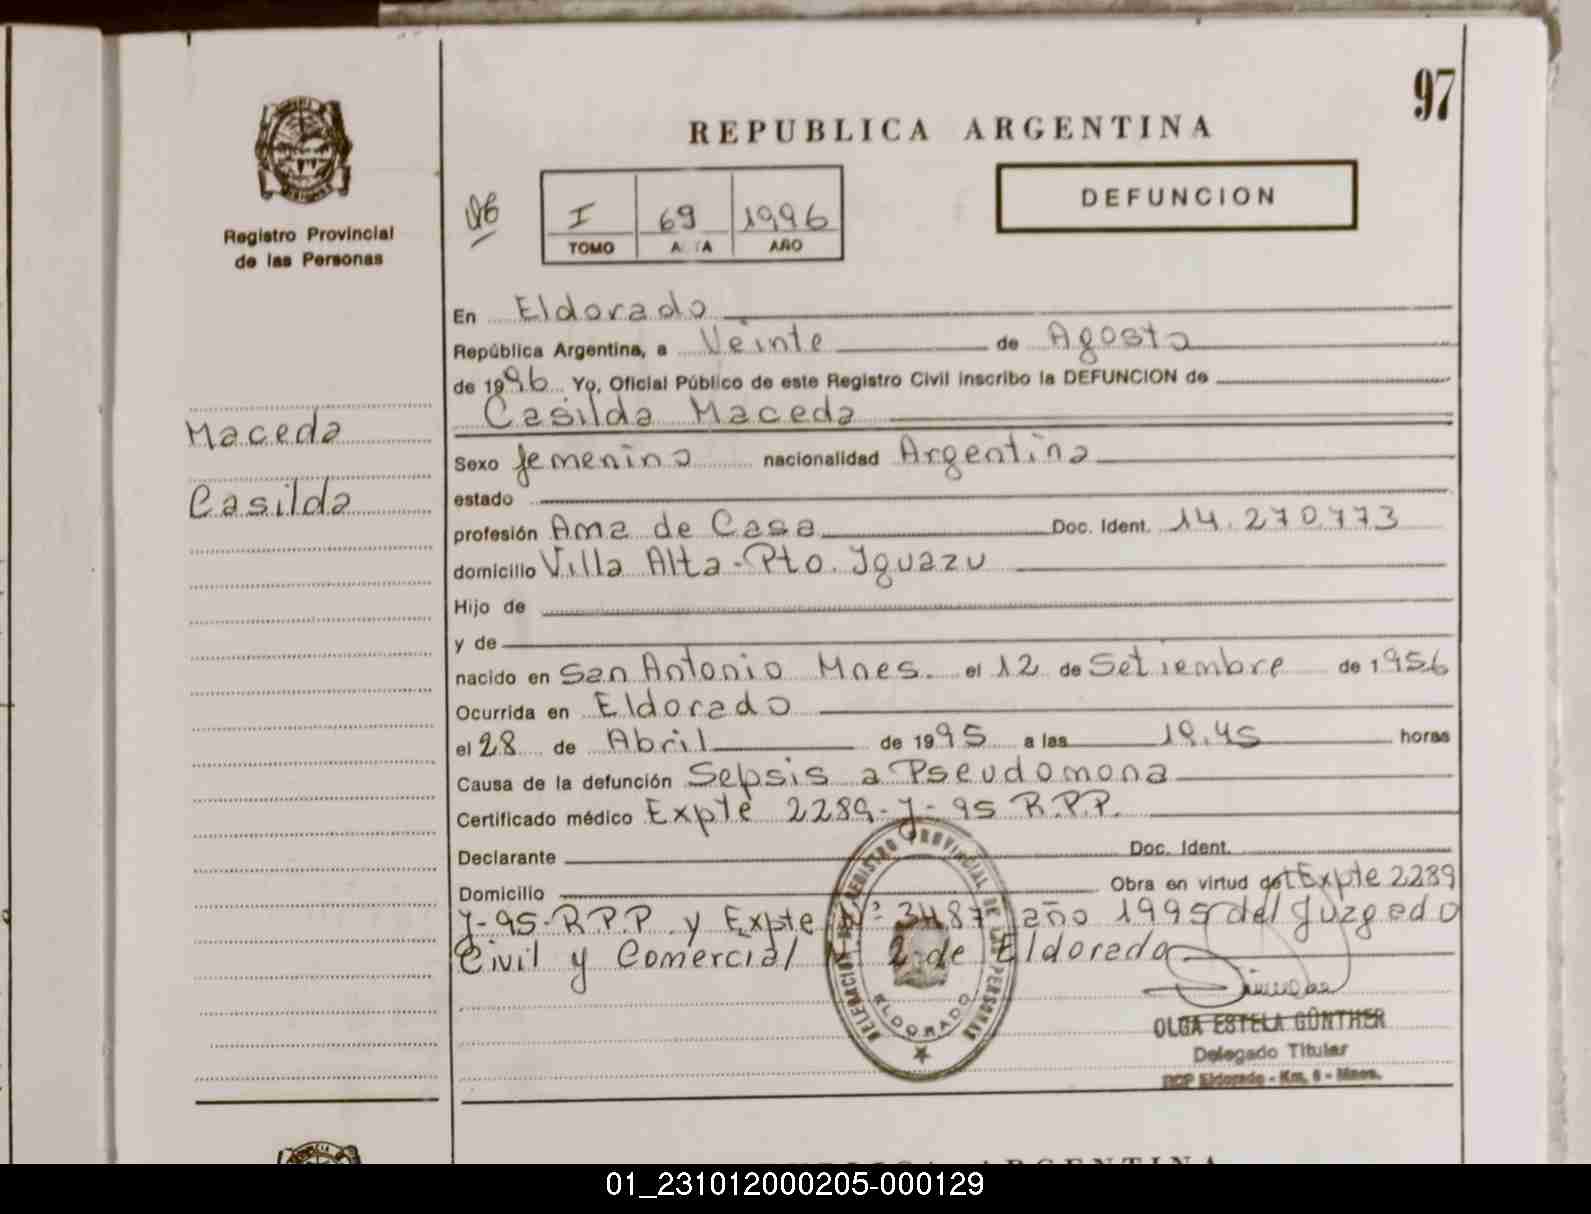 97
REPUBLICA ARGENTINA
DEFUNCION
I 69 1996
TOMO ACTA AÑO
Registro Provincial
de las Personas
Maceda
Casilda
En Eldorado
República Argentina, a Veinte de Agosto
de 1996 Yo, Oficial Público de este Registro Civil inscribo la DEFUNCION de
Casilda Maceda
Sexo femenino nacionalidad Argentina
estado
profesión Ama de Casa Doc. Ident. 14.270.773
domicilio Villa Alta - Pto. Iguazu
Hijo de
y de
nacido en San Antonio Mnes. el 12 de Setiembre de 1956
Ocurrida en Eldorado
el 28 de Abril de 1995 a las 19.45 horas
Causa de la defunción Sepsis a Pseudomona
Certificado médico Expte 2289-J-95 R.P.P.
Declarante Doc. Ident.
Domicilio Obra en virtud del Expte 2289
J-95-R.P.P. y Expte Nº 3487 año 1995 del Juzgado
Civil y Comercial Nº 2 de Eldorado
DELEGACION DEL REGISTRO PROVINCIAL DE LAS PERSONAS
ELDORADO
OLGA ESTELA GÜNTHER
Delegado Titular
RCP Eldorado - Km. 9 - Mnes.
REPUBLICA ARGENTINA
01_231012000205-000129